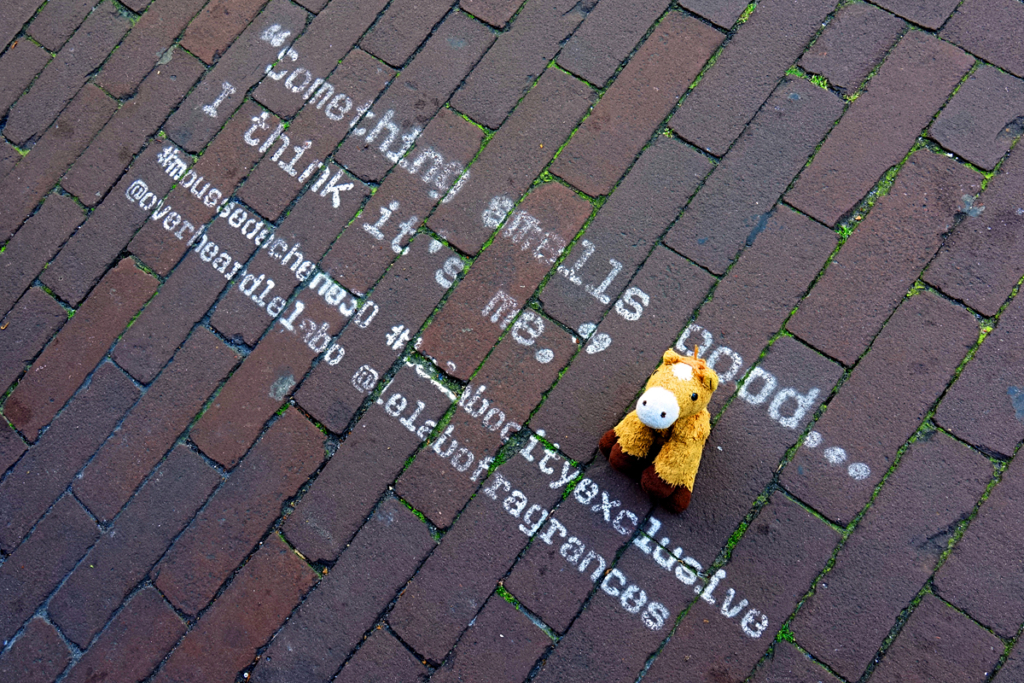 “Something smells good...
I think it's me.”
#moussedechene30 #lelabocityexclusive
@overheardlelabo @lelabofragrances